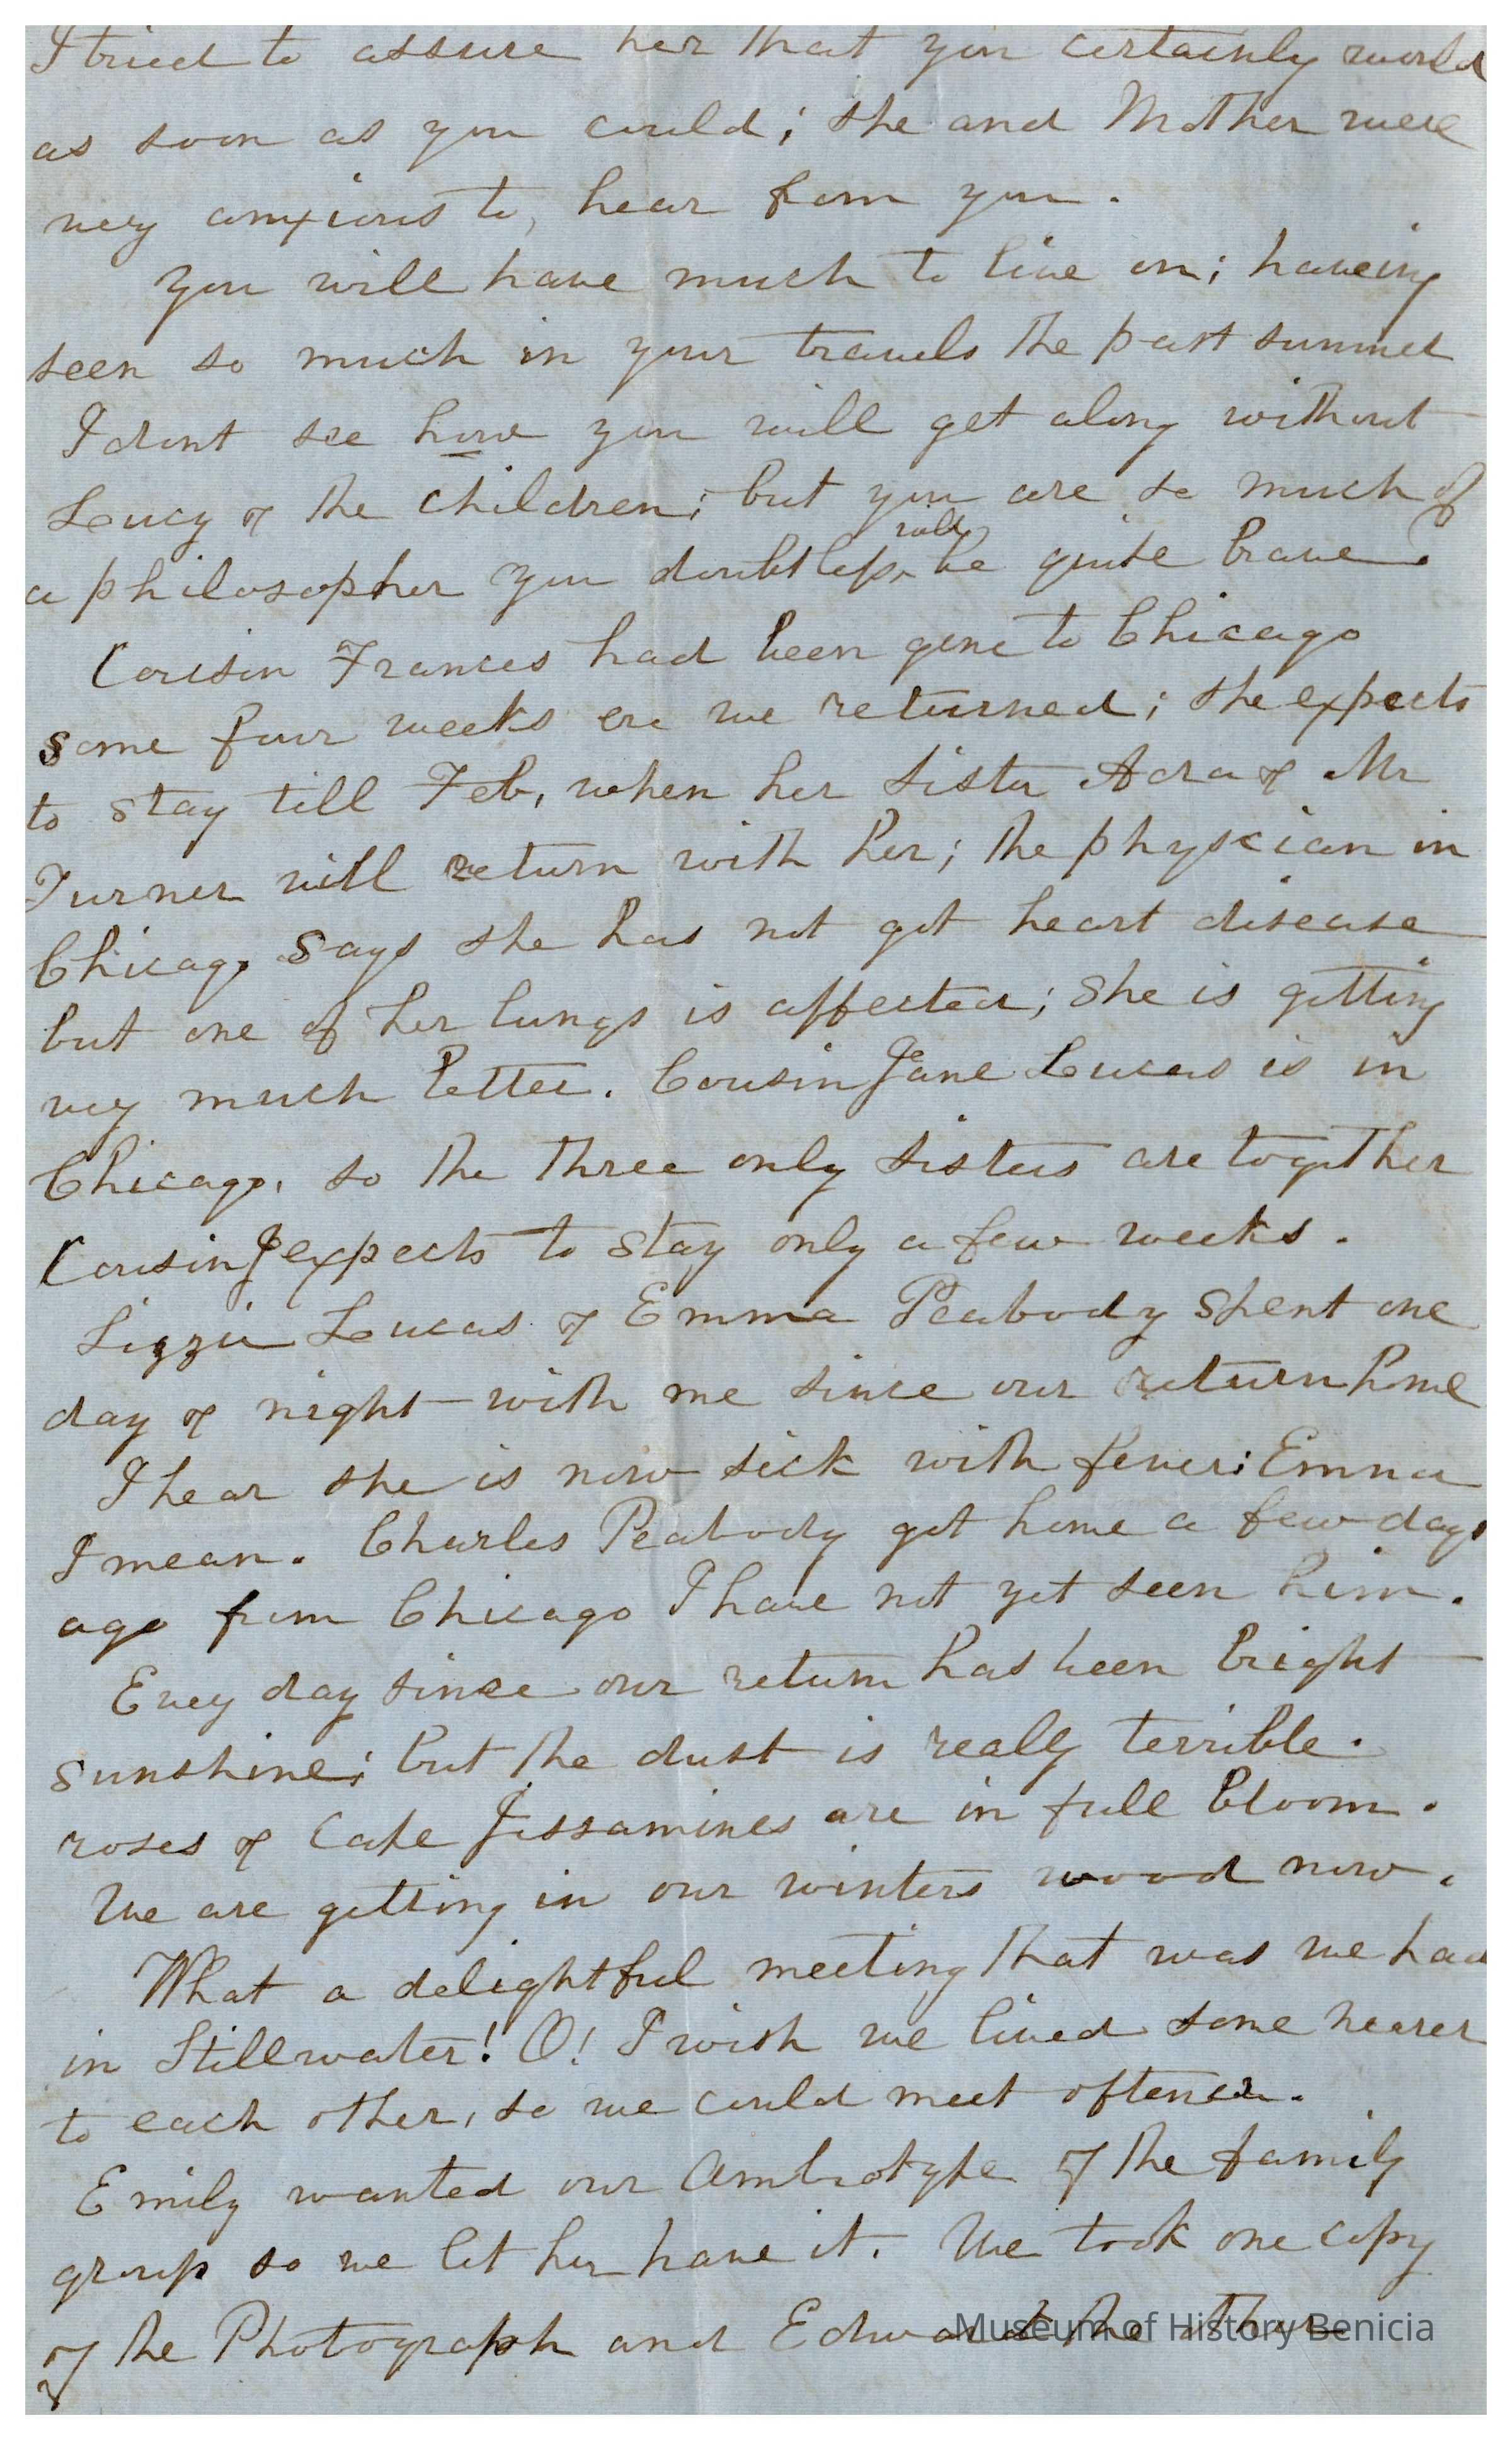 I tried to assure her that you certainly would
as soon as you could; she and Mother were
very anxious to, hear from you.
You will have much to live on; haveing
seen so much in your travels the past summer
I dont see how you will get along without
Lucy & the children; but you are so much of
will
a philosopher you doubtless be quite brave.
Cousin Frances had been gone to Chicago
some four weeks ere we returned; she expects
to stay till Feb, when her sister Adra & Mr
Turner will return with her; the physician in
Chicago says she has not got heart disease
but one of her lungs is affected; she is getting
very much better. Cousin Jane Lucas is in
Chicago, so the three only sisters are together
Cousin J expects to stay only a few weeks.
Lizzie Lucas & Emma Peabody spent one
day & night with me since our return home
I hear she is now sick with fever; Emma
I mean. Charles Peabody got home a few days
ago from Chicago I have not yet seen him.
Every day since our return has been bright
sunshine; but the dust is really terrible.
roses & Cape Jessamines are in full bloom.
We are getting in our winters wood now.
What a delightful meeting that was we had
in Stillwater! O! I wish we lived some nearer
to each other, so we could meet oftener.
Emily wanted our Ambrotype of the family
group so we let her have it. We took one copy
of the Photograph and Edward the other
Museum of History Benicia